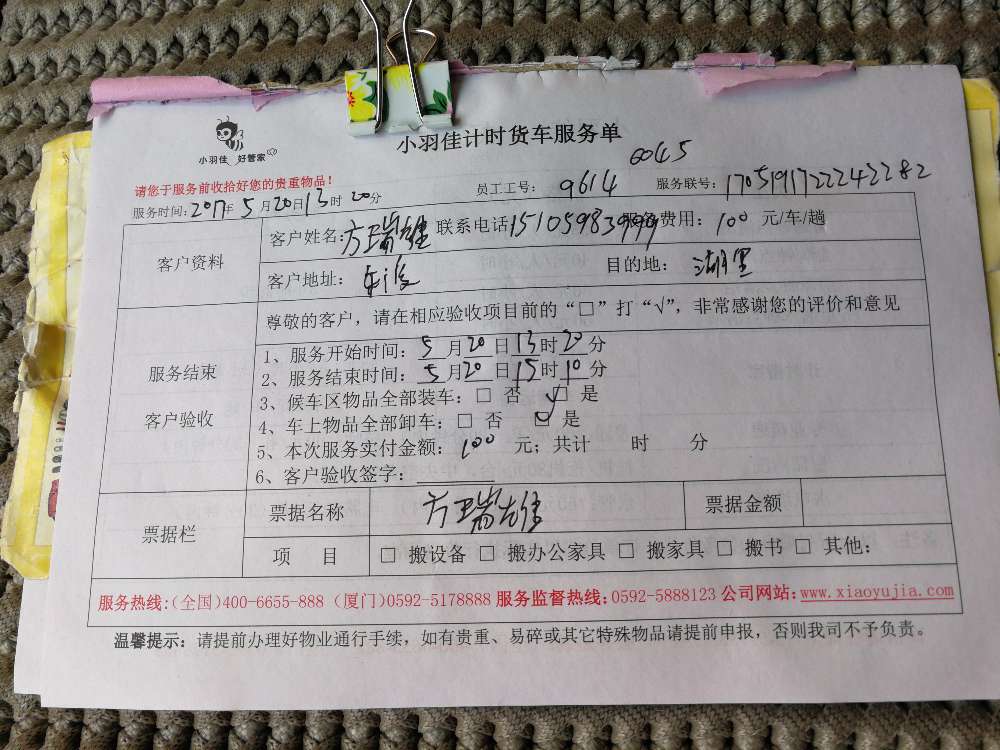 小羽佳 好管家
小羽佳计时货车服务单
6045
请您于服务前收拾好您的贵重物品!
员工工号: 9614 服务联号: 1705191722242282
服务时间: 2017年 5月20日13时 20分
客户资料
客户姓名: 方瑞雄 联系电话 服务费用: 100 元/车/趟
客户地址: 目的地: 湖里
服务结束
客户验收
尊敬的客户,请在相应验收项目前的“□”打“√”,非常感谢您的评价和意见
1、服务开始时间: 5 月20 日13时20分
2、服务结束时间: 5 月20 日15时10分
3、候车区物品全部装车: □ 否 ☑ 是
4、车上物品全部卸车: □ 否 ☑ 是
5、本次服务实付金额: 100 元; 共计 时 分
6、客户验收签字:
票据栏
票据名称 方瑞雄 票据金额
项 目 □ 搬设备 □ 搬办公家具 □ 搬家具 □ 搬书 □ 其他:
服务热线:(全国)400-6655-888 (厦门)0592-5178888 服务监督热线:0592-5888123 公司网站:www.xiaoyujia.com
温馨提示: 请提前办理好物业通行手续, 如有贵重、易碎或其它特殊物品请提前申报, 否则我司不予负责。